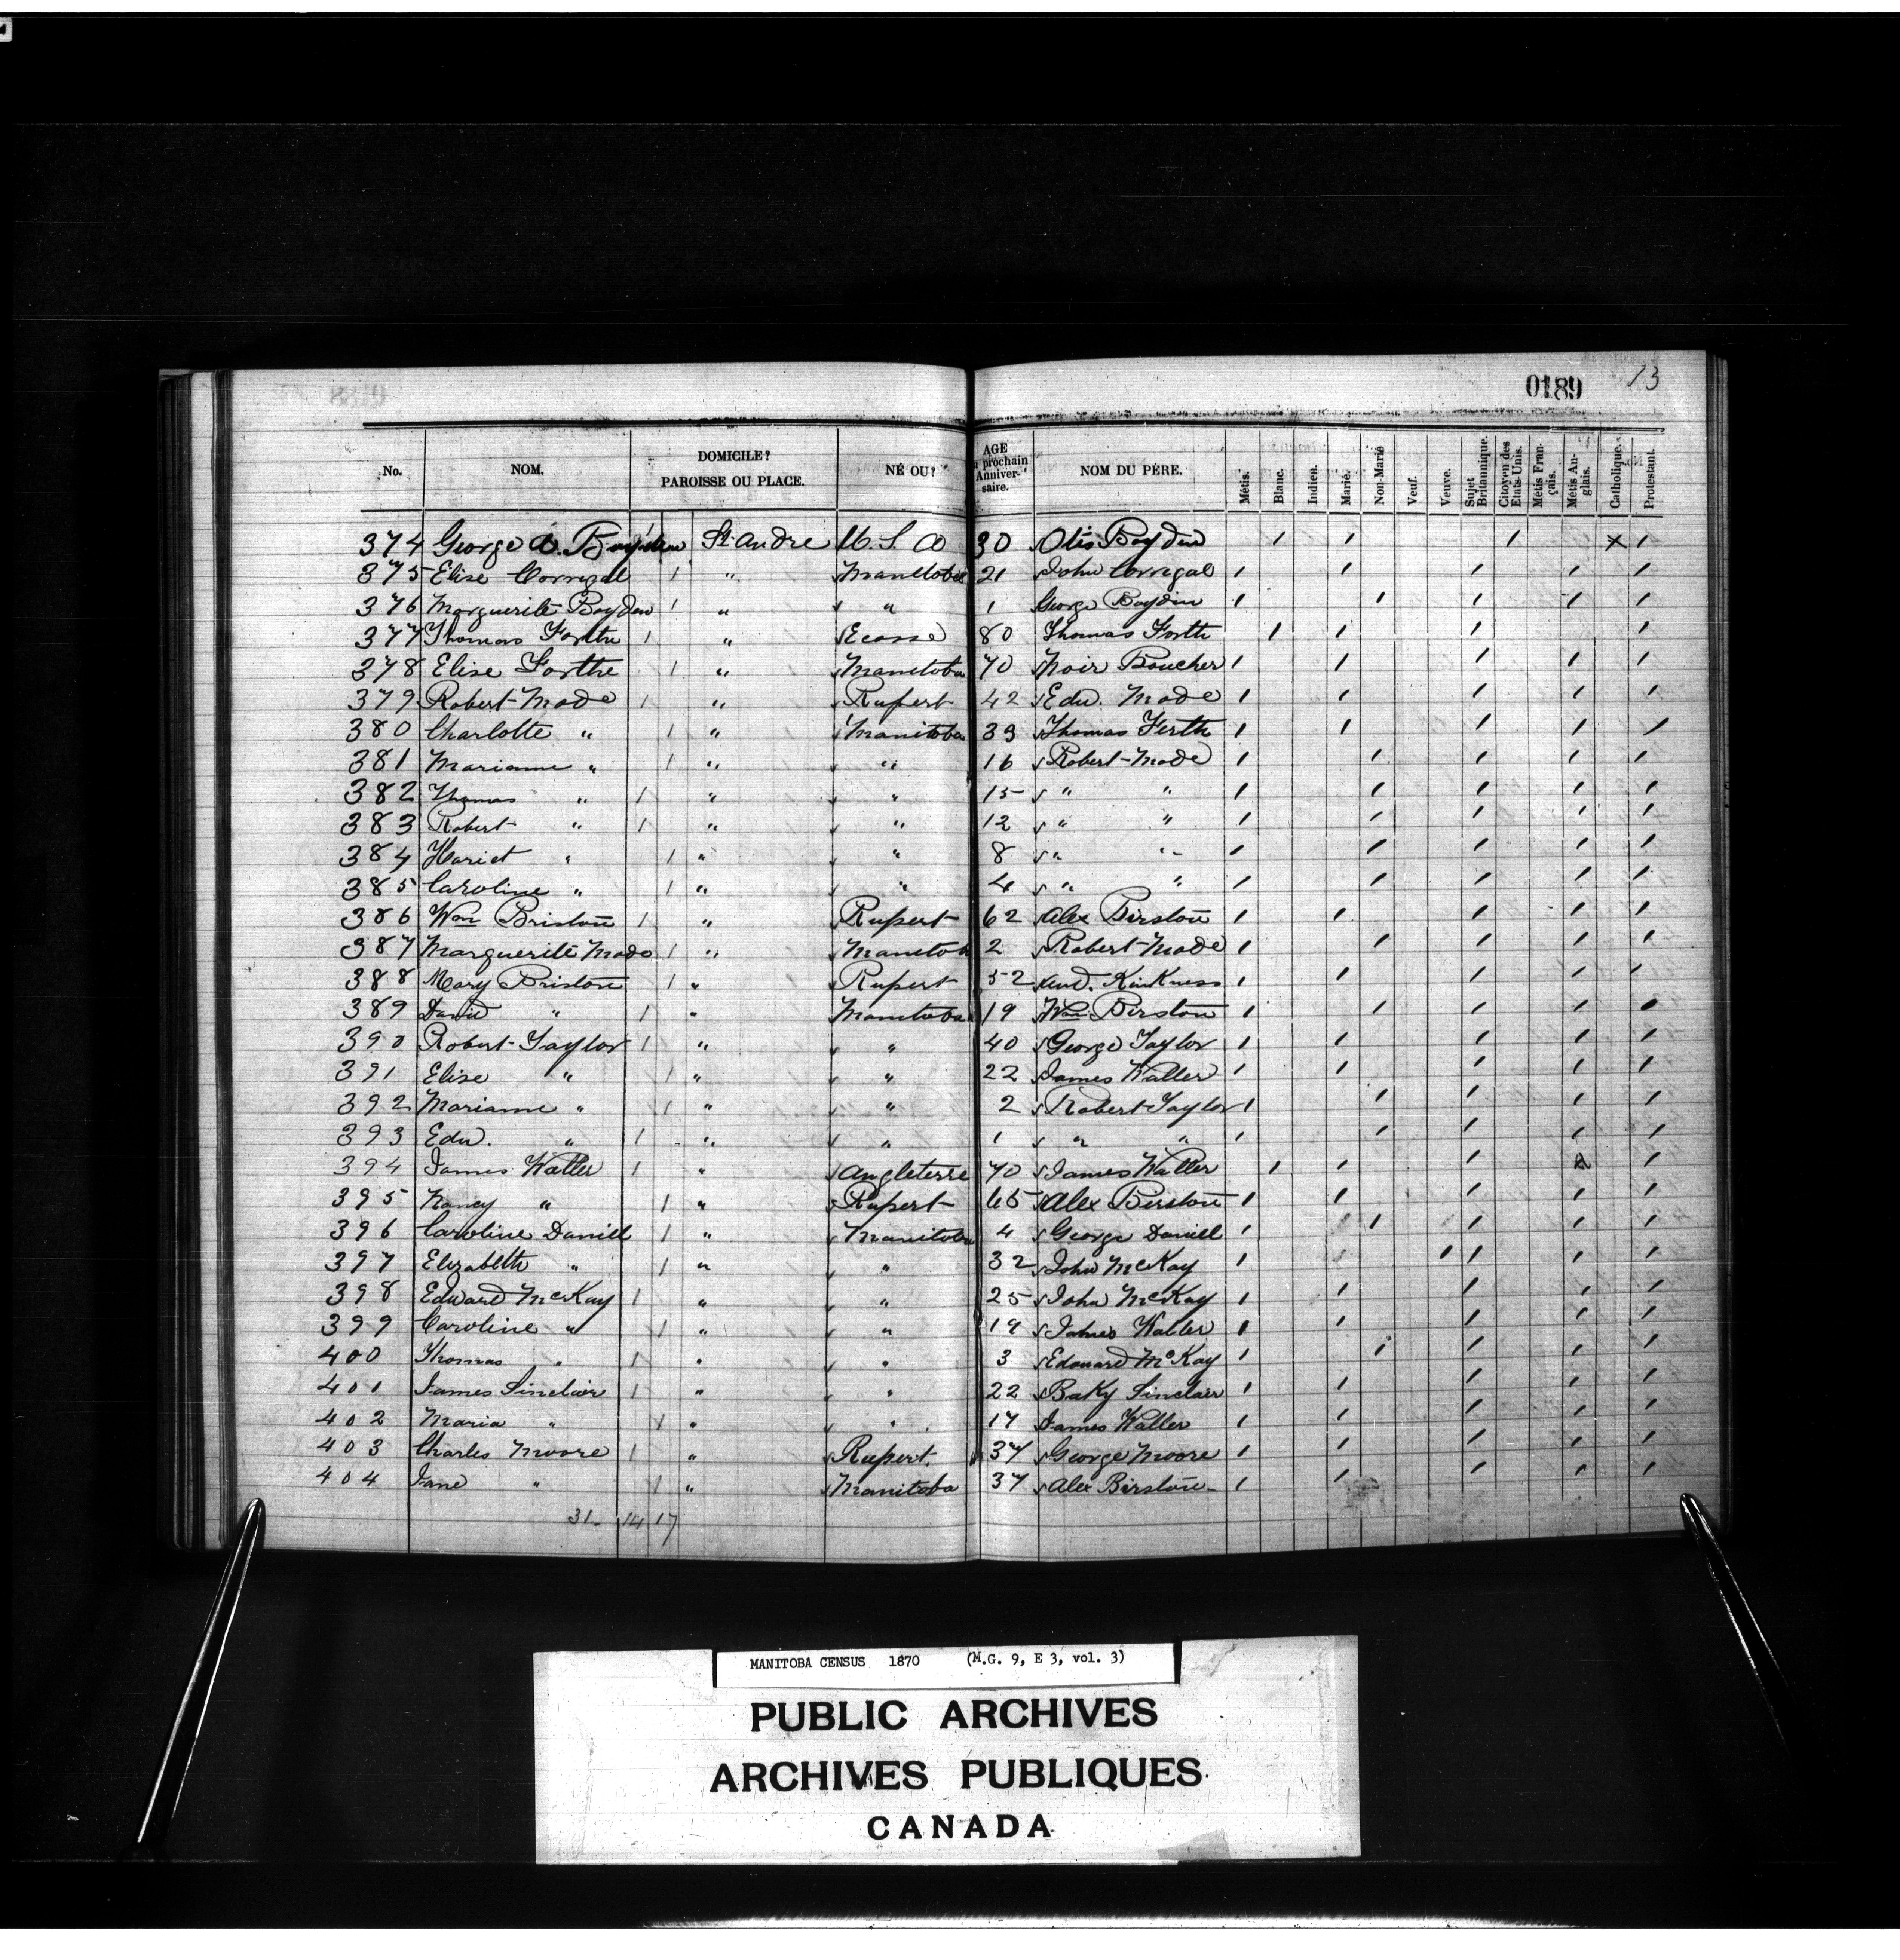 0189 13
No. NOM. DOMICILE? PAROISSE OU PLACE. NÉ OU? AGE prochain Anniversaire. NOM DU PÈRE. Métis. Blanc. Indien. Marié. Non-Marié Veuf. Veuve. Sujet Britannique. Citoyen des Etats-Unis. Métis Français. Métis Anglais. Catholique. Protestant.
374 George A. Boyden St. Andre U. S. A 30 Otis Boyden / / / x /
375 Elise Corrigal / " Manitoba 21 John Corrigal / / / / /
376 Marguerite Boyden / " " 1 George Boyden / / / / /
377 Thomas Forth / " Ecosse 80 Thomas Forth / / / /
378 Elise Forthe / " Manitoba 70 Noir Boucher / / / / /
379 Robert Mode / " Rupert 42 Edw. Mode / / / / /
380 Charlotte " / " Manitoba 39 Thomas Ferth / / / / /
381 Marianne " / " " 16 Robert Mode / / / / /
382 Thomas " / " " 15 " " / / / / /
383 Robert " / " " 12 " " / / / / /
384 Hariet " / " " 8 " " / / / / /
385 Caroline " / " " 4 " " / / / / /
386 Wm Briston / " Rupert 62 Alex Birston / / / / /
387 Marguerite Mode / " Manitob 2 Robert Mode / / / / /
388 Mary Briston / " Rupert 52 And. Kirkness / / / / /
389 David " / " Manitoba 19 Wm Birston / / / / /
390 Robert Taylor / " " 40 George Taylor / / / / /
391 Elise " / " " 22 James Waller / / / / /
392 Marianne " / " " 2 Robert Taylor / / / / /
393 Edw. " / " " 1 " " / / / / /
394 James Waller / " Angleterre 70 James Waller / / / /
395 Nancy " / " Rupert 65 Alex Birston / / / / /
396 Caroline Daniell / " Manitoba 4 George Daniell / / / / /
397 Elizabeth " / " " 32 John McKay / / / / /
398 Edward McKay / " " 25 John McKay / / / / /
399 Caroline " / " " 19 James Waller / / / / /
400 Thomas " / " " 3 Edouard McKay / / / / /
401 James Sinclair / " " 22 Baky Sinclair / / / / /
402 Maria " / " " 17 James Waller / / / / /
403 Charles Moore / " Rupert. 37 George Moore / / / / /
404 Jane " / " Manitoba 37 Alex Birston / / / / /
31 14 17
MANITOBA CENSUS 1870 (M.G. 9, E 3, vol. 3)
PUBLIC ARCHIVES
ARCHIVES PUBLIQUES
CANADA